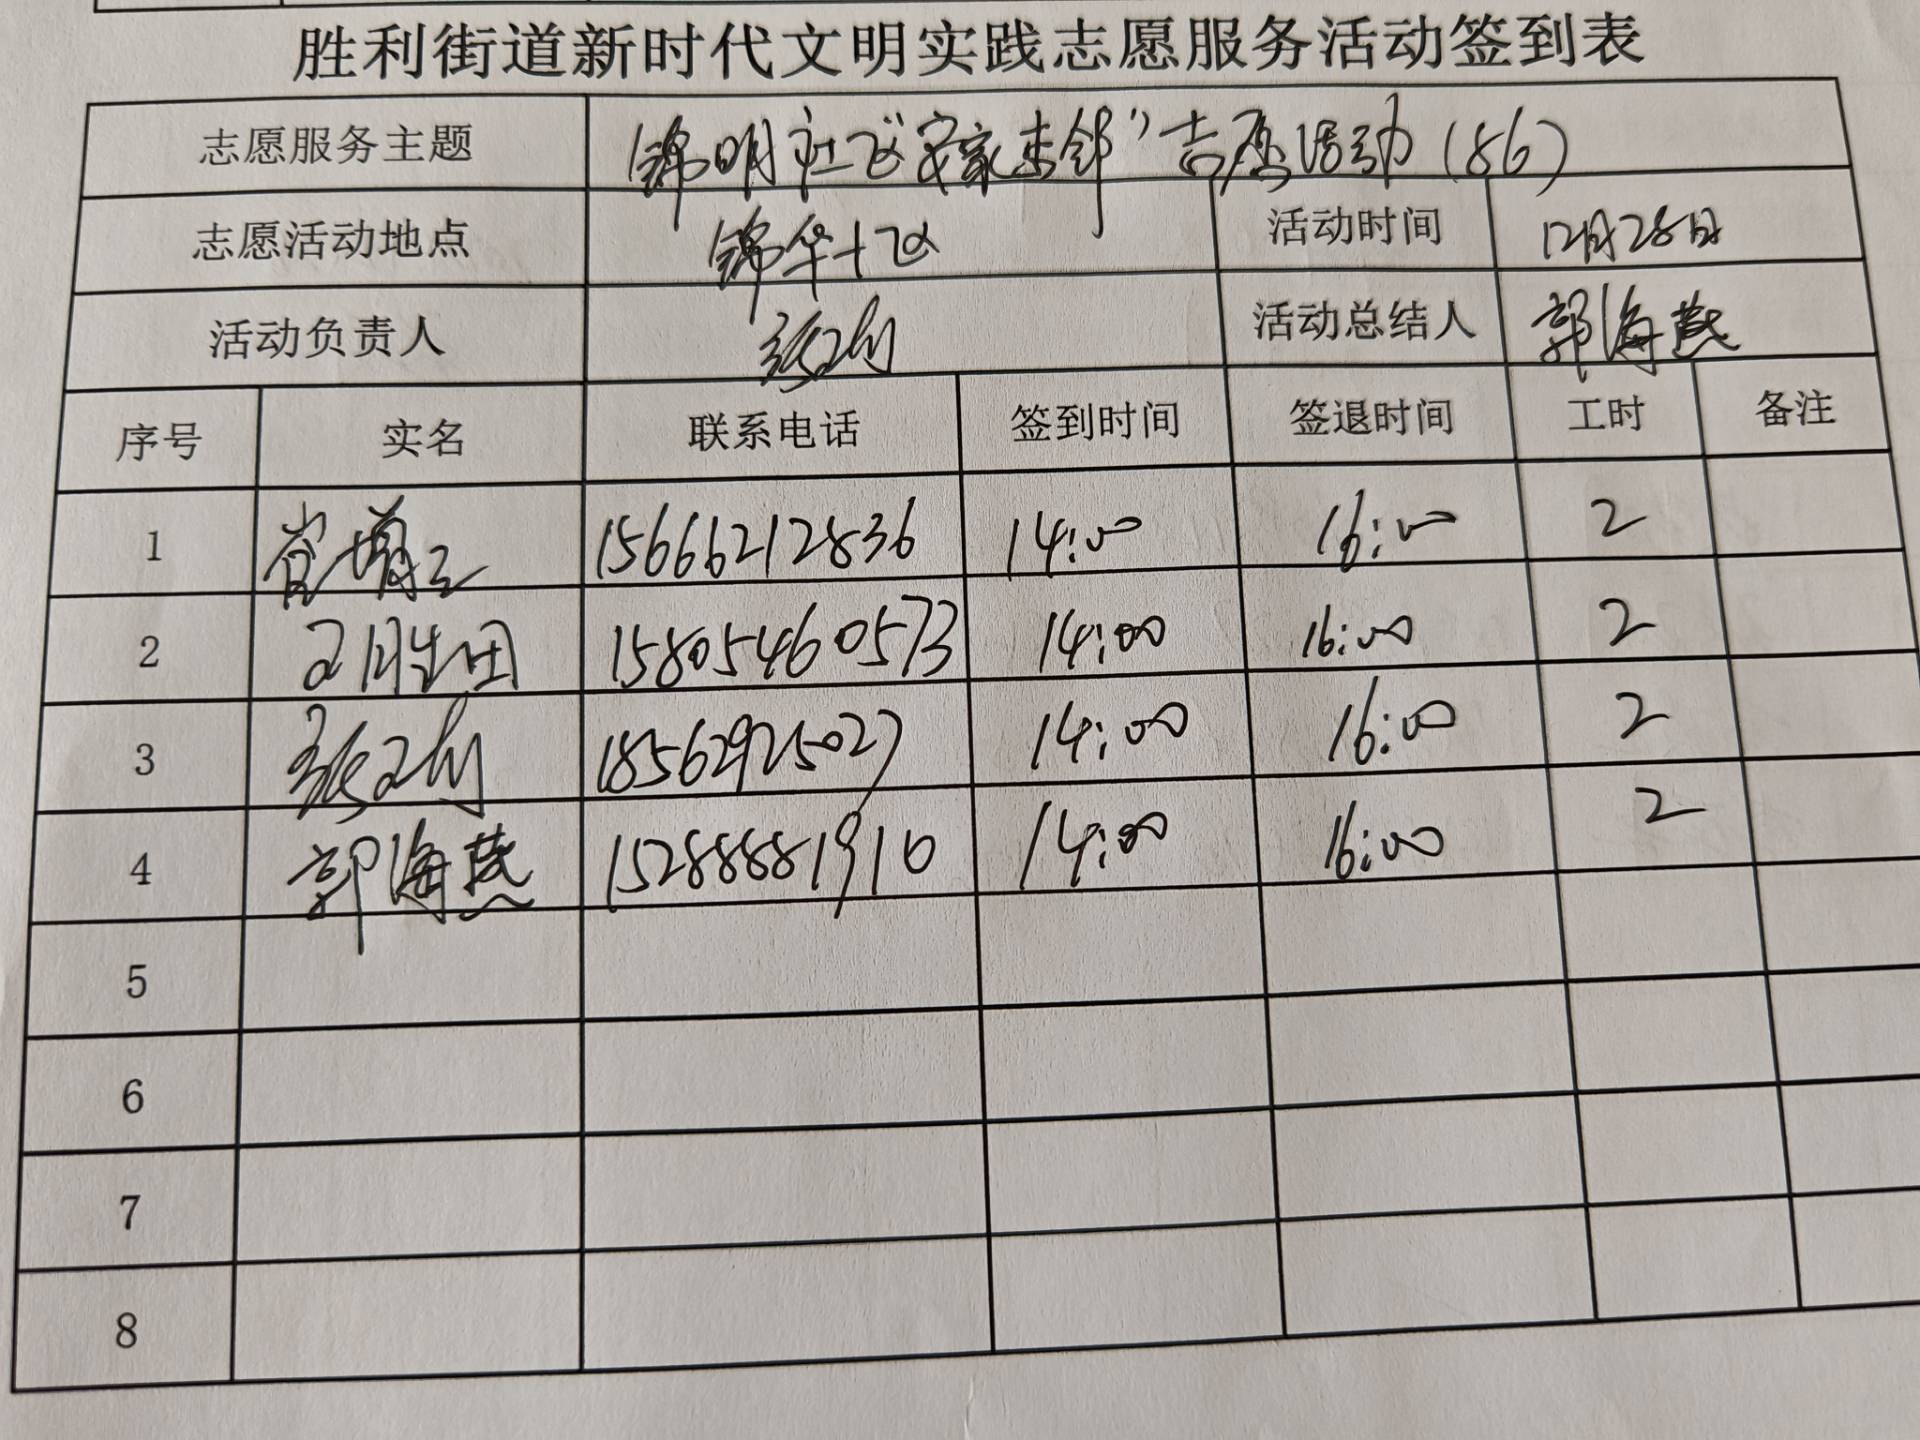 胜利街道新时代文明实践志愿服务活动签到表
志愿服务主题 锦明社区“安家杰邻”志愿活动(86)
志愿活动地点 锦华十区 活动时间 12月28日
活动负责人 活动总结人 郭海燕
序号 实名 联系电话 签到时间 签退时间 工时 备注
1 15666212836 14:00 16:00 2
2 15805460573 14:00 16:00 2
3 18562925027 14:00 16:00 2
4 郭海燕 15288881910 14:00 16:00 2
5
6
7
8